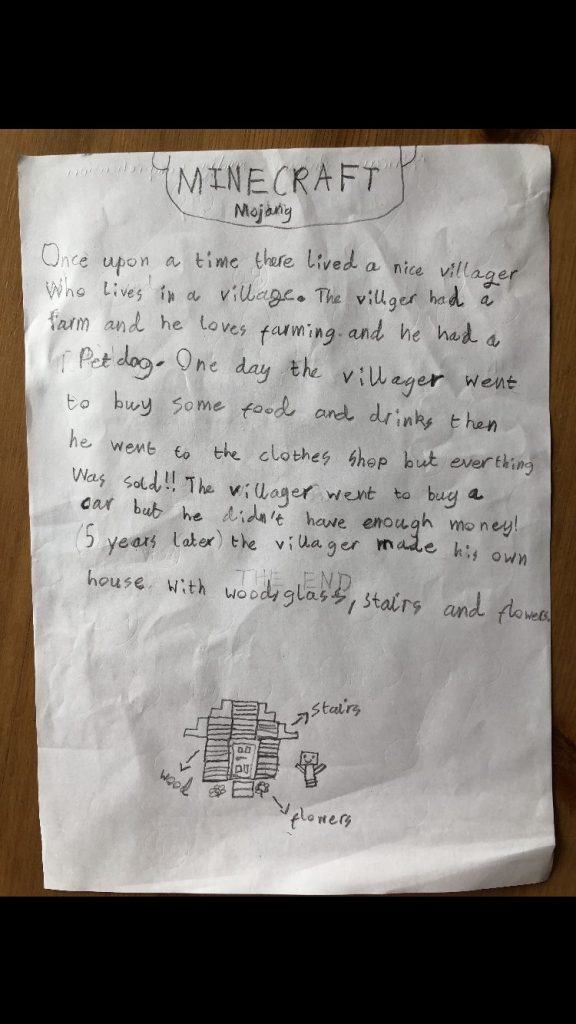 MINECRAFT
Mojang
Once upon a time there lived a nice villager
Who lives in a village. The villger had a
farm and he loves farming. and he had a
Pet dog. One day the villager went
to buy some food and drinks then
he went to the clothes shop but everthing
Was sold!! The villager went to buy a
car but he didn't have enough money!
(5 years later) the villager made his own
THE END
house. With wood, glass, stairs and flowers.
stairs
wood
flowers